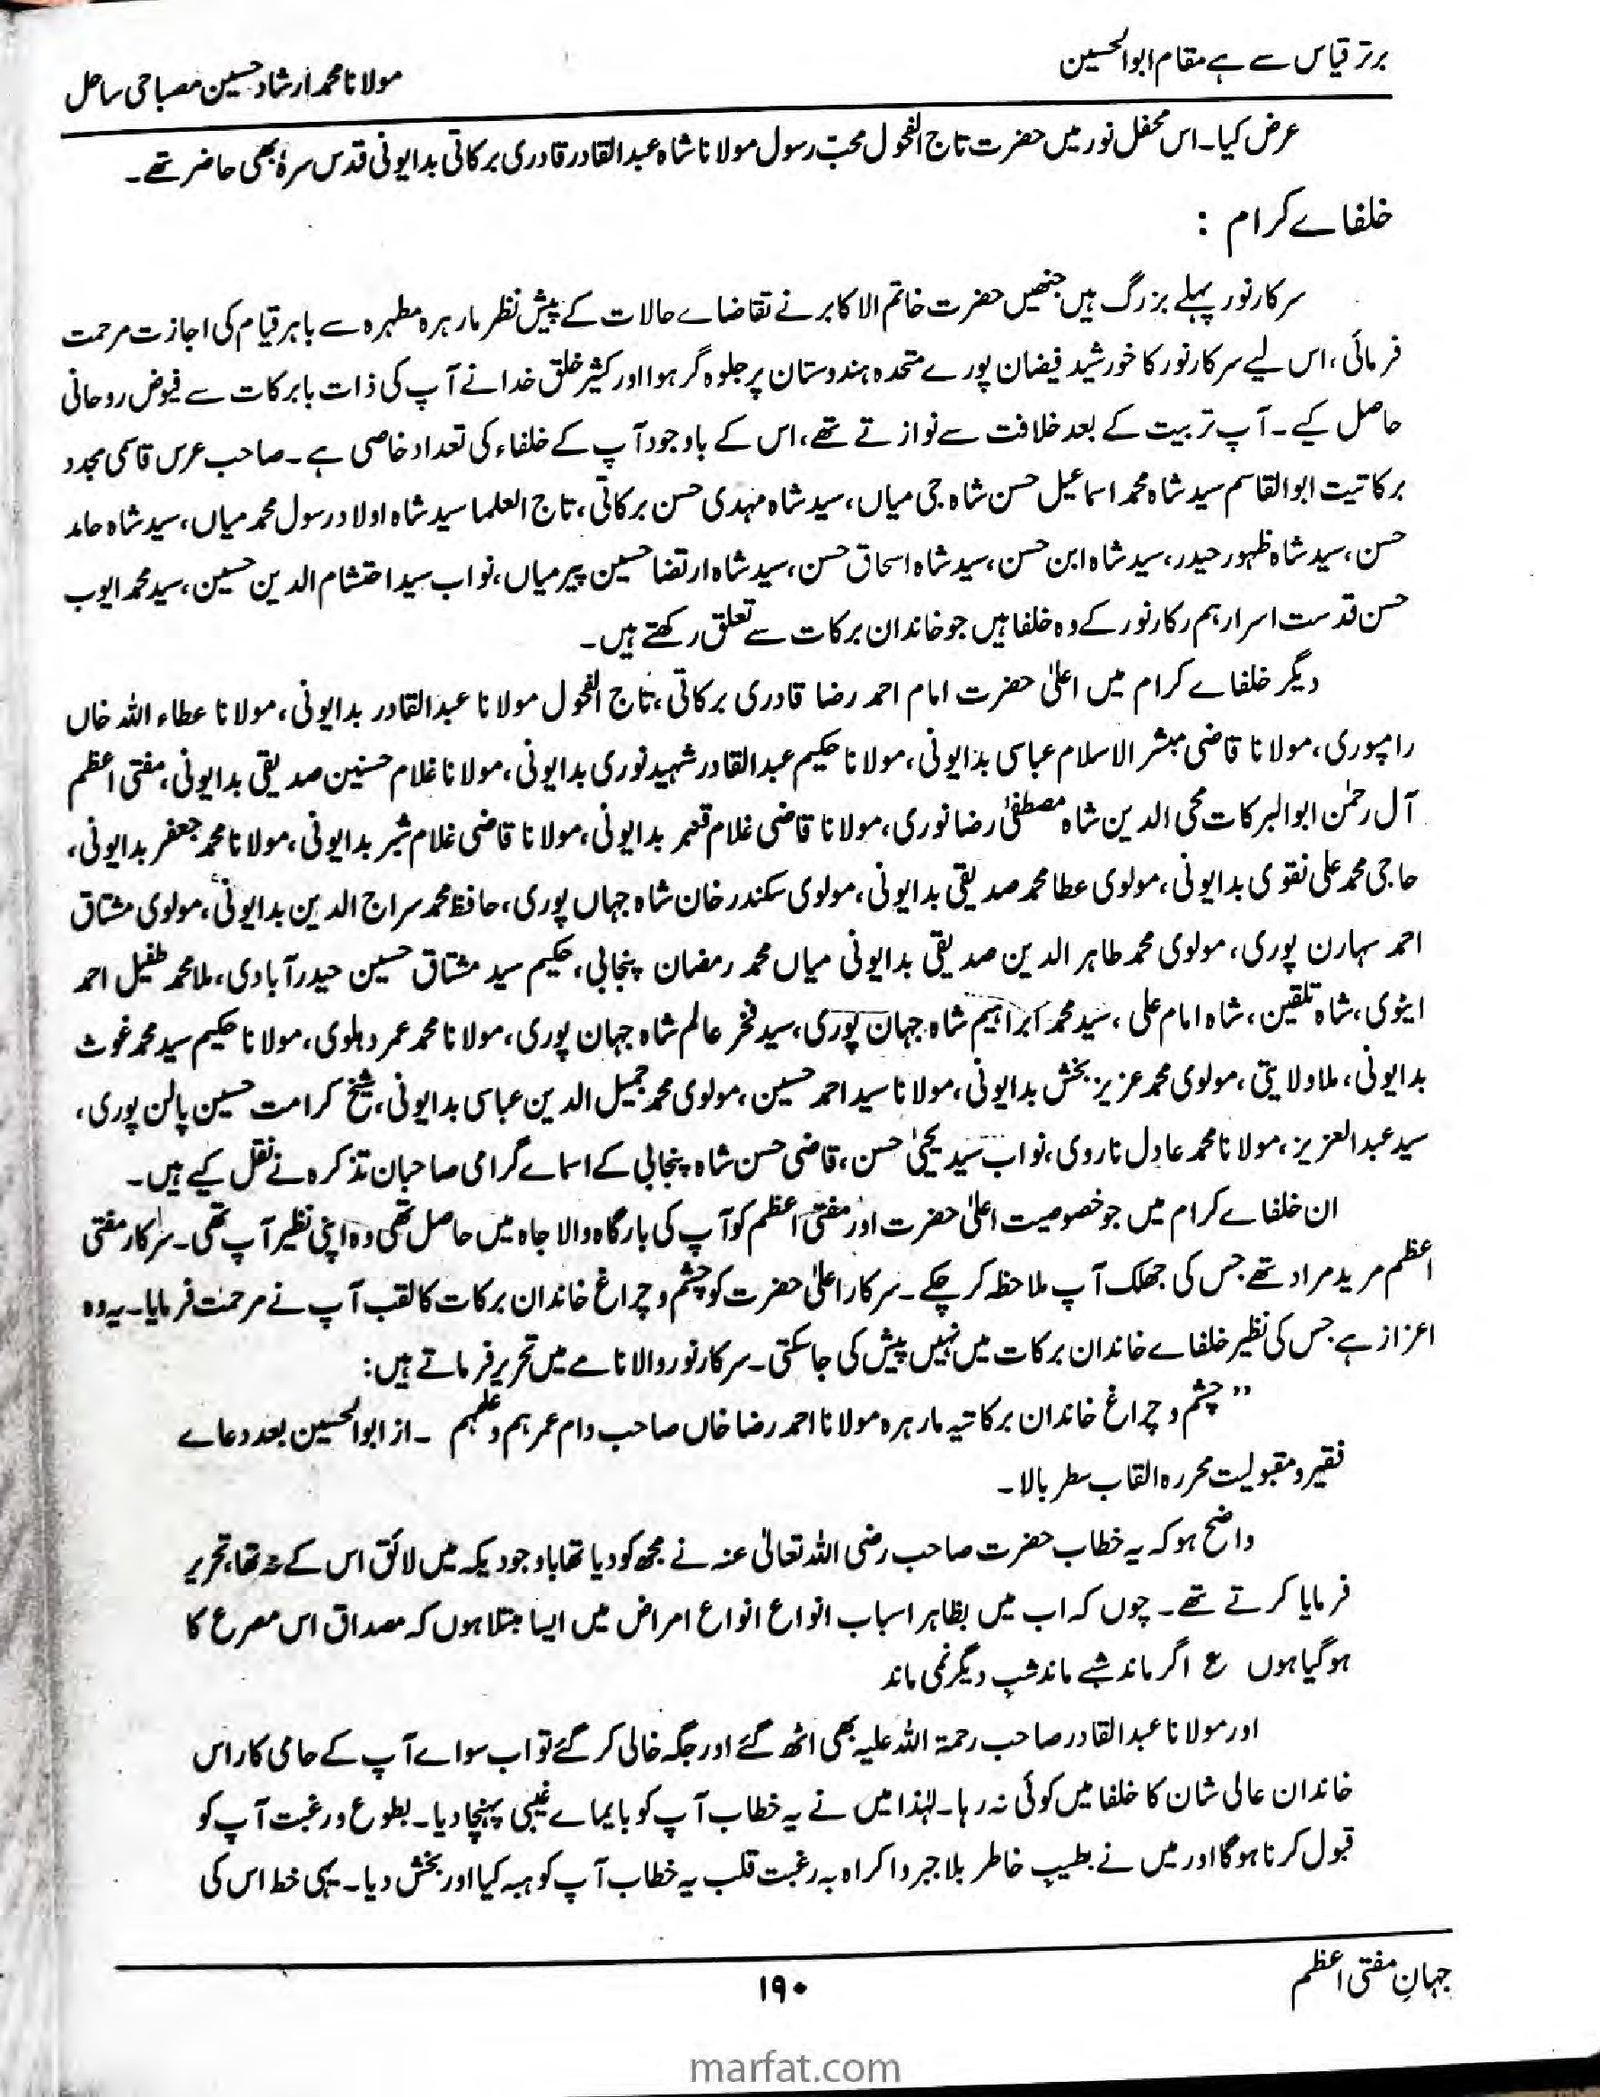 برتر قیاس سے ہے مقام ابوالحسین
مولانا محمد ارشاد حسین مصباحی ساحل
عرض کیا۔ اس محفل نور میں حضرت تاج الفحول محبّ رسول مولانا شاہ عبدالقادر قادری برکاتی بدایونی قدس سرہٗ بھی حاضر تھے۔
خلفاے کرام :
سرکار نور پہلے بزرگ ہیں جنھیں حضرت خاتم الاکابر نے تقاضاے حالات کے پیش نظر مارہرہ مطہرہ سے باہر قیام کی اجازت مرحمت
فرمائی، اس لیے سرکار نور کا خورشید فیضان پورے متحدہ ہندوستان پر جلوہ گر ہوا اور کثیر خلق خدا نے آپ کی ذات بابرکات سے فیوض روحانی
حاصل کیے۔ آپ تربیت کے بعد خلافت سے نوازتے تھے، اس کے باوجود آپ کے خلفاء کی تعداد خاصی ہے۔ صاحب عرس قاسمی مجدد
برکاتیت ابوالقاسم سید شاہ محمد اسماعیل حسن شاہ جی میاں، سید شاہ مہدی حسن برکاتی، تاج العلما سید شاہ اولاد رسول محمد میاں، سید شاہ حامد
حسن، سید شاہ ظہور حیدر، سید شاہ ابن حسن، سید شاہ اسحاق حسن، سید شاہ ارتضا حسین پیر میاں، نواب سید احتشام الدین حسین، سید محمد ایوب
حسن قدست اسرارہم رکار نور کے وہ خلفا ہیں جو خاندان برکات سے تعلق رکھتے ہیں۔
دیگر خلفاے کرام میں اعلیٰ حضرت امام احمد رضا قادری برکاتی، تاج الفحول مولانا عبدالقادر بدایونی، مولانا عطاء اللہ خاں
رامپوری، مولانا قاضی مبشر الاسلام عباسی بدایونی، مولانا حکیم عبدالقادر شہید نوری بدایونی، مولانا غلام حسنین صدیقی بدایونی، مفتی اعظم
آل رحمٰن ابوالبرکات محی الدین شاہ مصطفیٰ رضا نوری، مولانا قاضی غلام قنبر بدایونی، مولانا قاضی غلام شبر بدایونی، مولانا محمد جعفر بدایونی،
حاجی محمد علی نقوی بدایونی، مولوی عطا محمد صدیقی بدایونی، مولوی سکندر خان شاہ جہاں پوری، حافظ محمد سراج الدین بدایونی، مولوی مشتاق
احمد سہارن پوری، مولوی محمد طاہر الدین صدیقی بدایونی میاں محمد رمضان پنجابی، حکیم سید مشتاق حسین حیدرآبادی، ملا محمد طفیل احمد
اینوی، شاہ تلقین، شاہ امام علی، سید محمد ابراہیم شاہ جہان پوری، سید فخر عالم شاہ جہان پوری، مولانا محمد عمر دہلوی، مولانا حکیم سید محمد غوث
بدایونی، ملا ولایتی، مولوی محمد عزیز بخش بدایونی، مولانا سید احمد حسین، مولوی محمد جمیل الدین عباسی بدایونی، شیخ کرامت حسین پالن پوری،
سید عبدالعزیز، مولانا محمد عادل ناروی، نواب سید یحییٰ حسن، قاضی حسن شاہ پنجابی کے اسماے گرامی صاحبان تذکرہ نے نقل کیے ہیں۔
ان خلفاے کرام میں جو خصوصیت اعلیٰ حضرت اور مفتی اعظم کو آپ کی بارگاہ والا جاہ میں حاصل تھی وہ اپنی نظیر آپ تھی۔ سرکار مفتی
اعظم مرید مراد تھے جس کی جھلک آپ ملاحظہ کرچکے۔ سرکار اعلیٰ حضرت کو چشم و چراغ خاندان برکات کا لقب آپ نے مرحمت فرمایا۔ یہ وہ
اعزاز ہے جس کی نظیر خلفاے خاندان برکات میں نہیں پیش کی جاسکتی۔ سرکار نور والا نامے میں تحریر فرماتے ہیں:
”چشم و چراغ خاندان برکاتیہ مارہرہ مولانا احمد رضا خاں صاحب دام عمرہم و علمہم ۔ از ابوالحسین بعد دعاے
فقیر و مقبولیت محررہ القاب سطر بالا۔
واضح ہو کہ یہ خطاب حضرت صاحب رضی اللہ تعالیٰ عنہ نے مجھ کو دیا تھا باوجود یکہ میں لائق اس کے نہ تھا، تحریر
فرمایا کرتے تھے۔ چوں کہ اب میں بظاہر اسباب انواع انواع امراض میں ایسا مبتلا ہوں کہ مصداق اس مصرع کا
ہوگیا ہوں ع اگر ماند شبے ماند شبِ دیگر نمی ماند
اور مولانا عبدالقادر صاحب رحمۃ اللہ علیہ بھی اٹھ گئے اور جگہ خالی کر گئے تو اب سواے آپ کے حامی کار اس
خاندان عالی شان کا خلفا میں کوئی نہ رہا۔ لہٰذا میں نے یہ خطاب آپ کو بایماے غیبی پہنچا دیا۔ بطوع و رغبت آپ کو
قبول کرنا ہوگا اور میں نے بطیبِ خاطر بلا جبر و اکراہ بہ رغبت قلب یہ خطاب آپ کو ہبہ کیا اور بخش دیا۔ یہی خط اس کی
جہانِ مفتی اعظم
۱۹۰
marfat.com